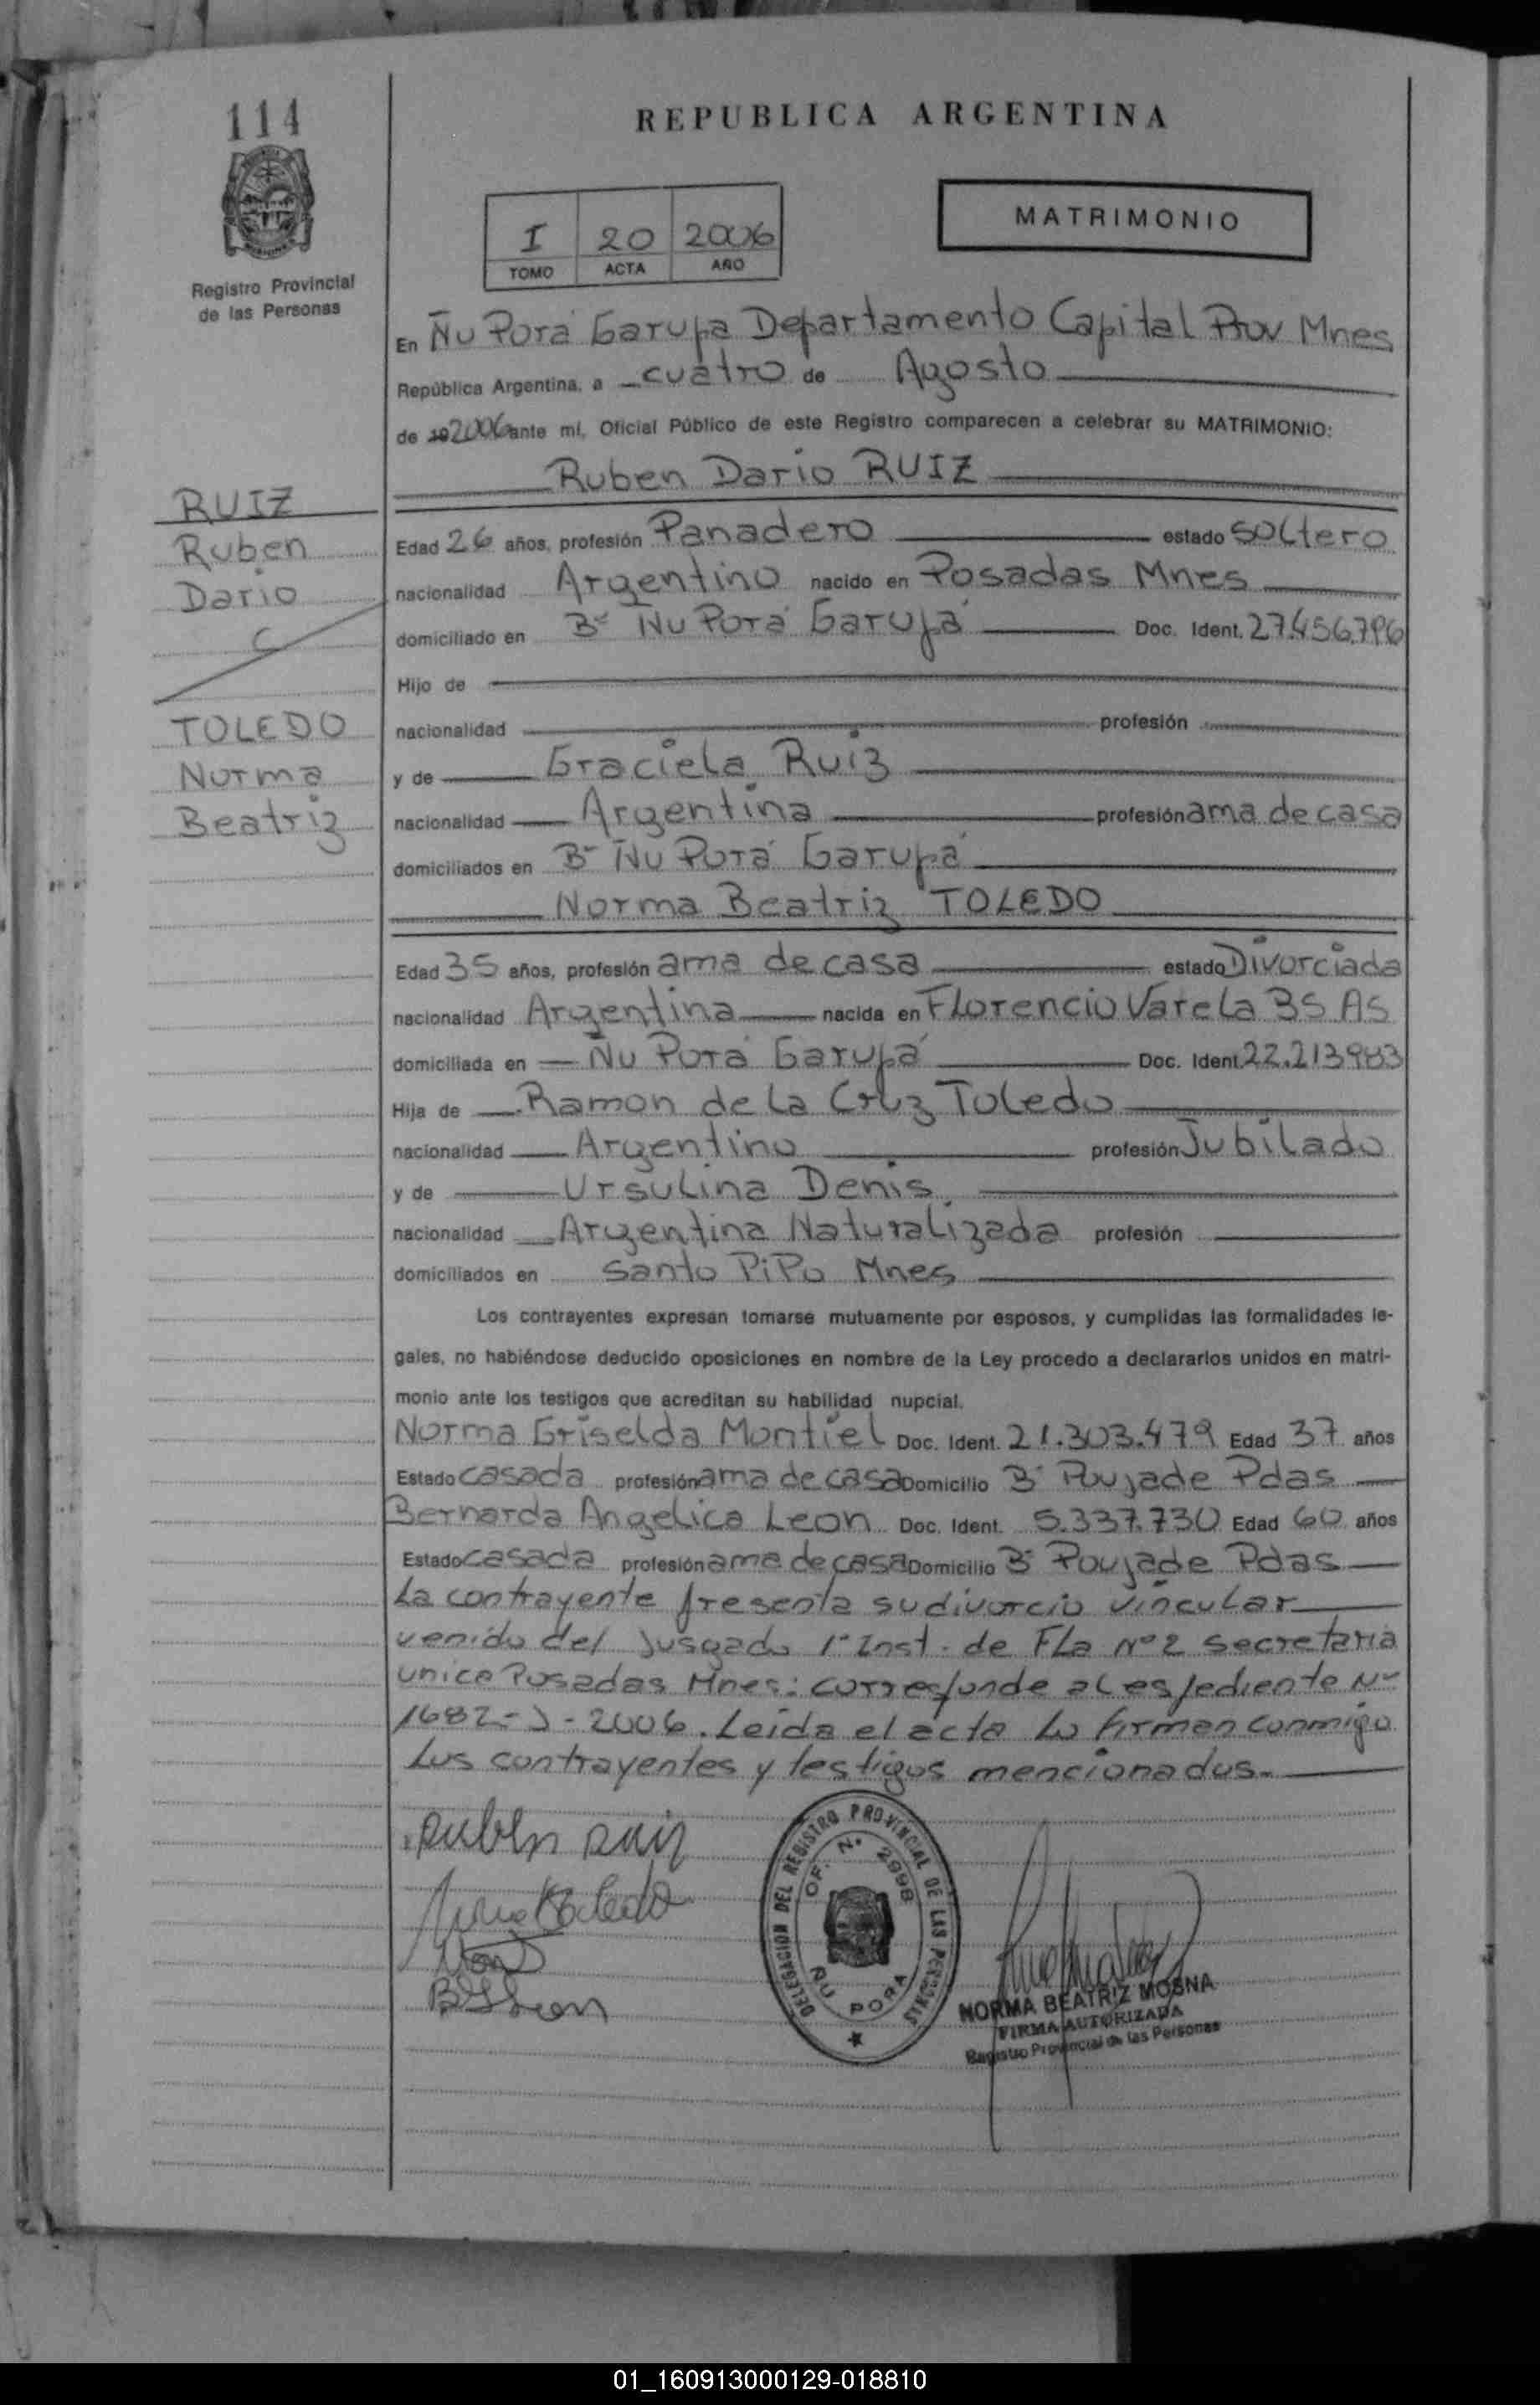 114
REPUBLICA ARGENTINA
MATRIMONIO
I 20 2006
TOMO ACTA AÑO
Registro Provincial
de las Personas
En Ñu Porá Garupa Departamento Capital Prov Mnes
República Argentina, a cuatro de Agosto
de 192006 ante mí, Oficial Público de este Registro comparecen a celebrar su MATRIMONIO:
Ruben Dario RUIZ
RUIZ
Ruben
Dario
C
TOLEDO
Norma
Beatriz
Edad 26 años, profesión Panadero estado soltero
nacionalidad Argentino nacido en Posadas Mnes
domiciliado en Bº Ñu Porá Garupá Doc. Ident. 27.456.796
Hijo de
nacionalidad profesión
y de Graciela Ruiz
nacionalidad Argentina profesión ama de casa
domiciliados en Bº Ñu Porá Garupá
Norma Beatriz TOLEDO
Edad 35 años, profesión ama de casa estado Divorciada
nacionalidad Argentina nacida en Florencio Varela BS AS
domiciliada en Ñu Porá Garupá Doc. Ident. 22.213983
Hija de Ramon de la Cruz Toledo
nacionalidad Argentino profesión Jubilado
y de Ursulina Denis
nacionalidad Argentina Naturalizada profesión
domiciliados en Santo PiPo Mnes
Los contrayentes expresan tomarse mutuamente por esposos, y cumplidas las formalidades le-
gales, no habiéndose deducido oposiciones en nombre de la Ley procedo a declararlos unidos en matri-
monio ante los testigos que acreditan su habilidad nupcial.
Norma Griselda Montiel Doc. Ident. 21.303.479 Edad 37 años
Estado casada profesión ama de casa Domicilio Bº Poujade Pdas
Bernarda Angelica Leon Doc. Ident. 5.337.730 Edad 60 años
Estado casada profesión ama de casa Domicilio Bº Poujade Pdas
La contrayente presenta su divorcio vincular
venido del Jusgado 1º Inst. de Fla Nº 2 secretaria
unica Posadas Mnes: corresponde al espediente Nº
1682-J-2006. Leida el acta lo firman conmigo
Los contrayentes y testigos mencionados.-
Ruben Ruiz
DELEGACION DEL REGISTRO PROVINCIAL DE LAS PERSONAS
OF. N. 2998
ÑU PORA
NORMA BEATRIZ MOSNA
FIRMA AUTORIZADA
Registro Provincial de las Personas
01_160913000129-018810